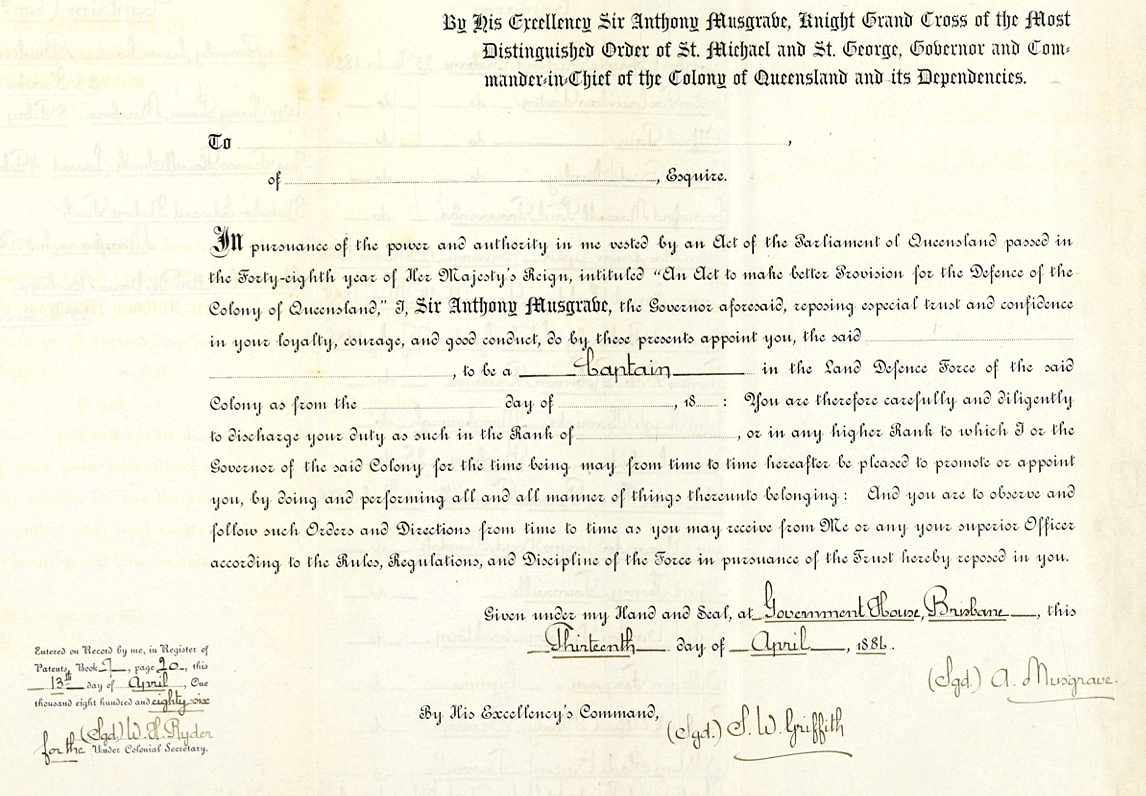 By His Excellency Sir Anthony Musgrave, Knight Grand Cross of the Most
Distinguished Order of St. Michael and St. George, Governor and Com-
mander-in-Chief of the Colony of Queensland and its Dependencies.
To ,
of , Esquire.
In pursuance of the power and authority in me vested by an Act of the Parliament of Queensland passed in
the Forty-eighth year of Her Majesty's Reign, intituled "An Act to make better Provision for the Defence of the
Colony of Queensland," I, Sir Anthony Musgrave, the Governor aforesaid, reposing especial trust and confidence
in your loyalty, courage, and good conduct, do by these presents appoint you, the said
, to be a Captain in the Land Defence Force of the said
Colony as from the day of , 18 : You are therefore carefully and diligently
to discharge your duty as such in the Rank of , or in any higher Rank to which I or the
Governor of the said Colony for the time being may from time to time hereafter be pleased to promote or appoint
you, by doing and performing all and all manner of things thereunto belonging: And you are to observe and
follow such Orders and Directions from time to time as you may receive from Me or any your superior Officer
according to the Rules, Regulations, and Discipline of the Force in pursuance of the Trust hereby reposed in you.
Given under my Hand and Seal, at Government House, Brisbane, this
Thirteenth day of April, 1886.
(Sgd.) A. Musgrave.
By His Excellency's Command,
(Sgd.) S. W. Griffith
Entered on Record by me, in Register of
Patents, Book , page 20, this
13th day of April, One
thousand eight hundred and eighty six
(Sgd) W. H. Ryder
for the Under Colonial Secretary.